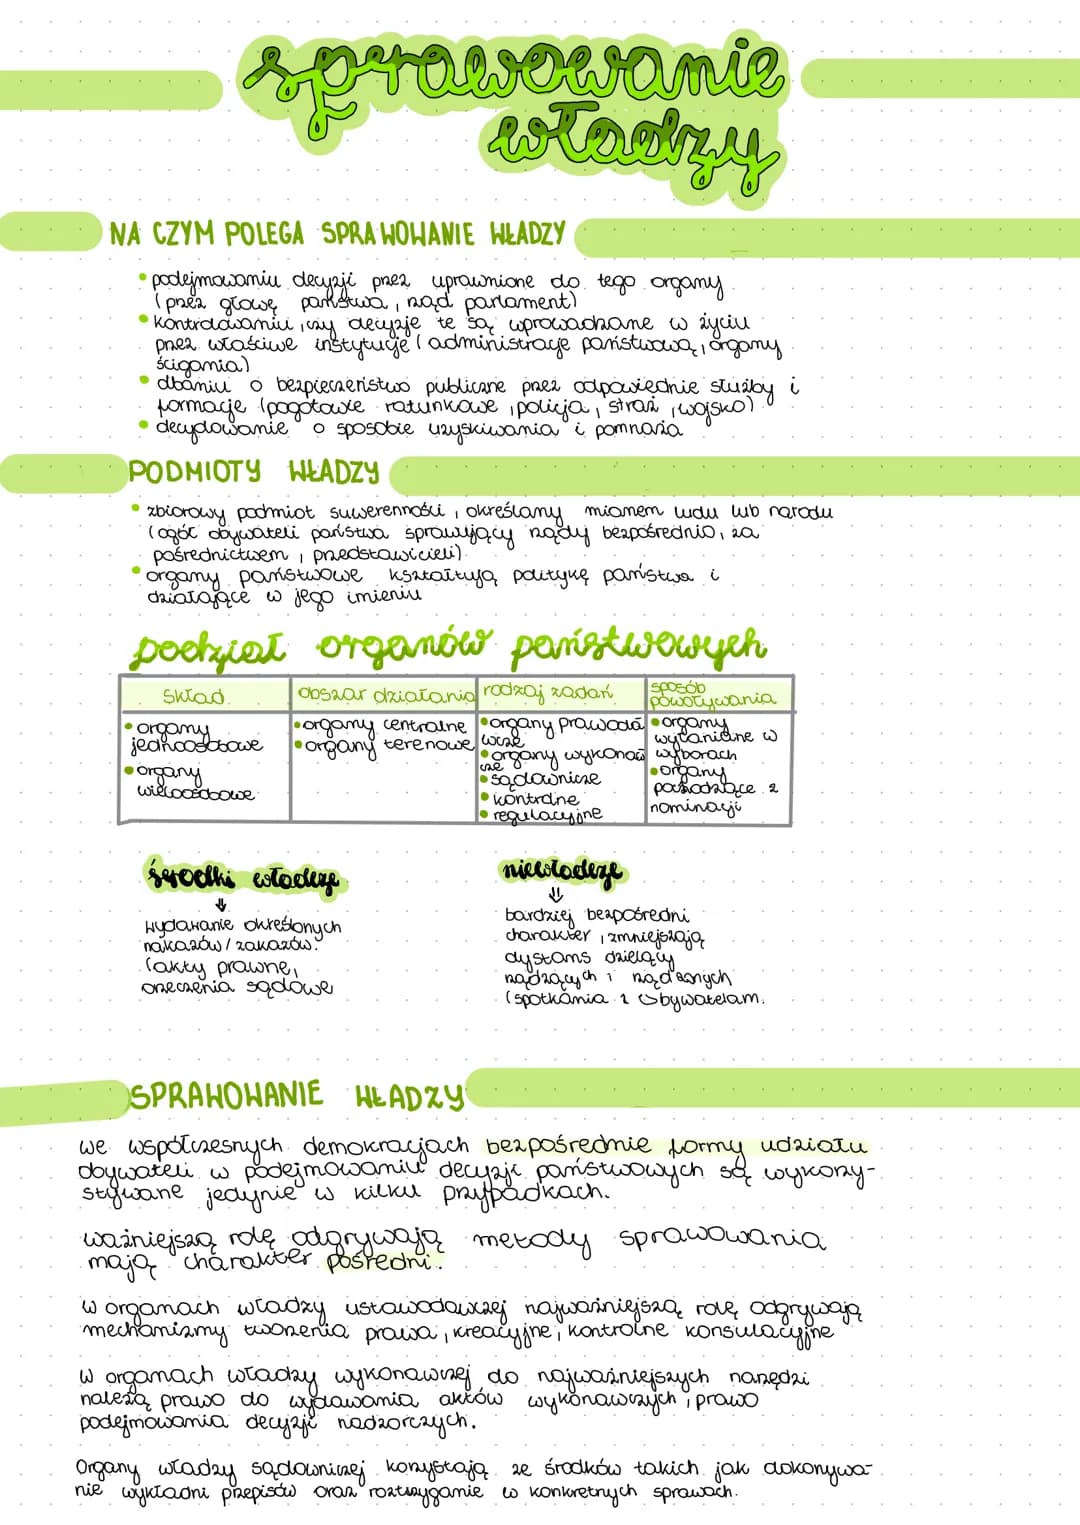 sprawowanie
władzy
NA CZYM POLEGA SPRAWOWANIE WŁADZY
• podejmowaniu decyzji przez uprawnione do tego organy
(przez głowę państwa, rząd parlament)
• kontrolowaniu, czy decyzje te są wprowadzane w życiu
przez właściwe instytucje (administracje państwową, organy
ścigania)
• dbaniu o bezpieczeństwo publiczne przez odpowiednie służby i
formacje (pogotowie ratunkowe, policja, straż, wojsko)
• decydowanie o sposobie uzyskiwania i pomnaża
PODMIOTY WŁADZY
• zbiorowy podmiot suwerenności, określany mianem ludu lub narodu
(ogół obywateli państwa sprawujący rządy bezpośrednio, za
pośrednictwem, przedstawicieli)
• organy państwowe kształtują politykę państwa i
działające w jego imieniu
podział organów państwowych
skład
• organy
jednoosobowe
• organy
wieloosobowe
obszar działania
• organy centralne
• organy terenowe
rodzaj zadań
• organy prawoda
wcze
• organy wykonaw
cze
• sądownicze
• kontrolne
• regulacyjne
sposób
powoływania
• organy
wyłaniane w
wyborach
• organy
pochodzące z
nominacji
środki władcze
⇓
wydawanie określonych
nakazów/zakazów.
(akty prawne,
orzeczenia sądowe
niewładcze
⇓
bardziej bezpośredni
charakter, zmniejszają
dystans dzielący
rządzących i rządzonych
(spotkania z obywatelam.
SPRAWOWANIE WŁADZY
we współczesnych demokracjach bezpośrednie formy udziału
obywateli w podejmowaniu decyzji państwowych są wykorzy-
stywane jedynie w kilku przypadkach.
ważniejszą rolę odgrywają metody sprawowania
mają charakter pośredni.
w organach władzy ustawodawczej najważniejszą rolę odgrywają
mechanizmy tworzenia prawa, kreacyjne, kontrolne konsulacyjne
w organach władzy wykonawczej do najważniejszych narzędzi
należą prawo do wydawania aktów wykonawczych, prawo
podejmowania decyzji nadzorczych.
Organy władzy sądowniczej korzystają ze środków takich jak dokonywa-
nie wykładni przepisów oraz roztrzyganie w konkretnych sprawach.